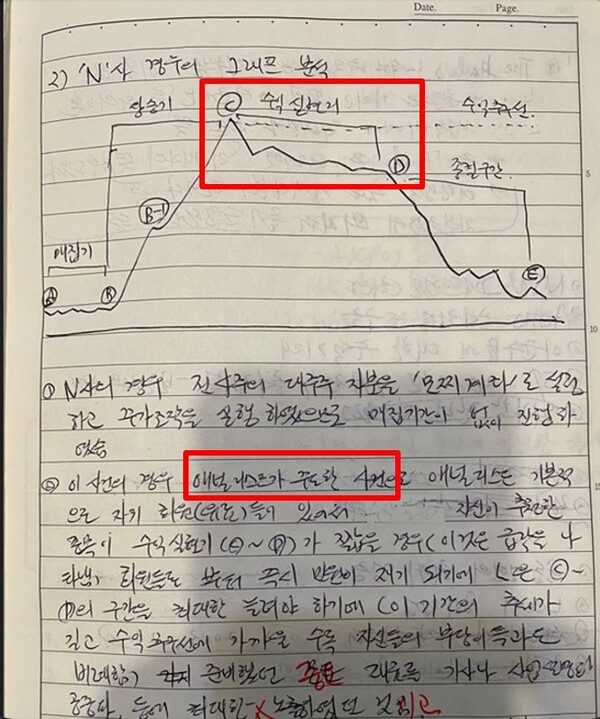 Date.
Page.
2) 'N'사 경우의 그래프 분석
상승기
C
수익실현기
수익추구선
D
종료구간
B-1
매집기
A
B
E
5
10
① N사의 경우 전사주의 대주주 지분을 '모찌계좌'로 설정
하고 주가조작을 실행 하였으므로 매집기간이 없이 진행하
였슴
② 이 사건의 경우 애널리스트가 주도한 사건으로 애널리스트 기본적
으로 자기 회원(유료)들이 있어서 자신이 추천한
종목이 수익실현기(C~D)가 짧을 경우(이것은 급락을 나
타냄) 회원들로 부터 즉시 반론이 제기 되기에 C-
D의 구간을 최대한 늘려야 하기에 (이 기간의 추세가
길고 수익추구선에 가까울 수록 자신들의 부당이득과도
비례함) 준비했던 재료 기사나 사업
등에 최대한 노출하였던 것